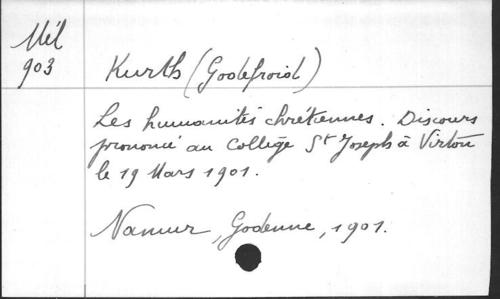 Mél
903
Kurth (Godefroid)
Les humanités chrétiennes. Discours
prononcé au Collège St Joseph à Virton
le 19 Mars 1901.
Namur, Godenne, 1901.